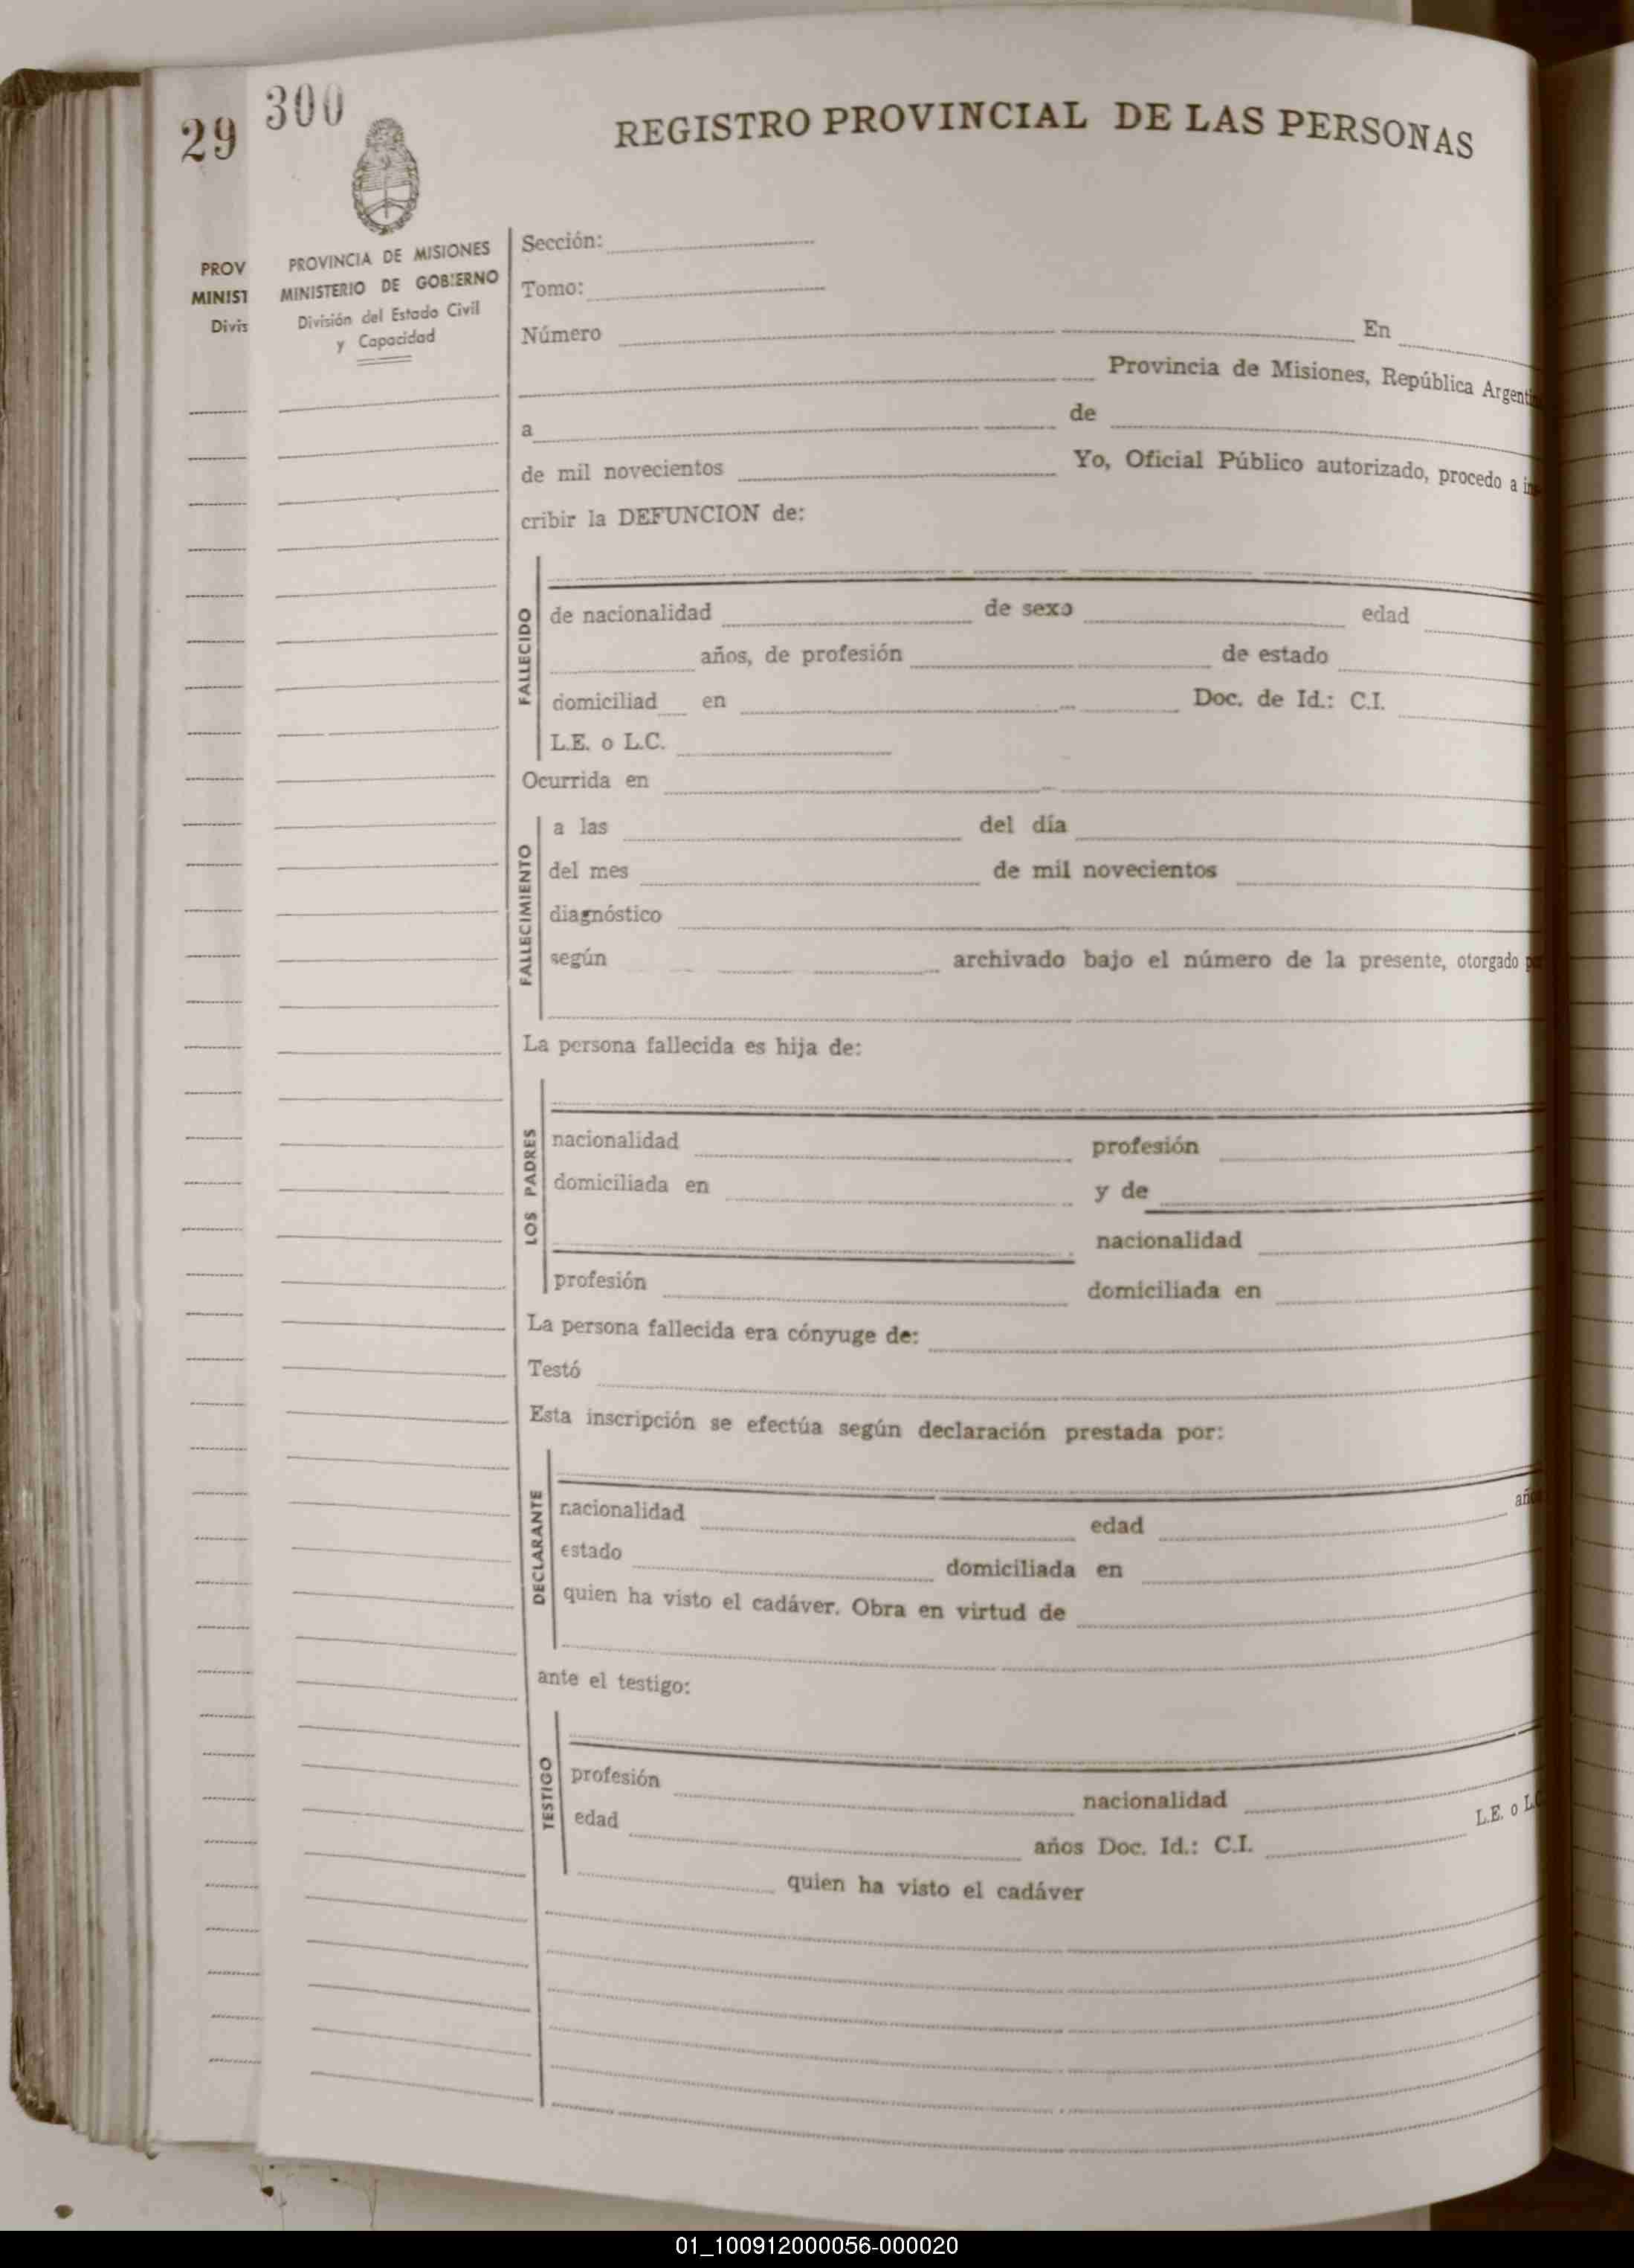 29 300
REGISTRO PROVINCIAL DE LAS PERSONAS
PROV
MINIST
Divis
PROVINCIA DE MISIONES
MINISTERIO DE GOBIERNO
División del Estado Civil
y Capacidad
Sección:
Tomo:
Número En
Provincia de Misiones, República Argenti
a de
de mil novecientos Yo, Oficial Público autorizado, procedo a in
cribir la DEFUNCION de:
FALLECIDO
de nacionalidad de sexo edad
años, de profesión de estado
domiciliad en Doc. de Id.: C.I.
L.E. o L.C.
Ocurrida en
FALLECIMIENTO
a las del día
del mes de mil novecientos
diagnóstico
según archivado bajo el número de la presente, otorgado p
La persona fallecida es hija de:
LOS PADRES
nacionalidad profesión
domiciliada en y de
nacionalidad
profesión domiciliada en
La persona fallecida era cónyuge de:
Testó
Esta inscripción se efectúa según declaración prestada por:
DECLARANTE
nacionalidad edad añ
estado domiciliada en
quien ha visto el cadáver. Obra en virtud de
ante el testigo:
TESTIGO
profesión nacionalidad
edad años Doc. Id.: C.I. L.E. o L.C
quien ha visto el cadáver
01_100912000056-000020